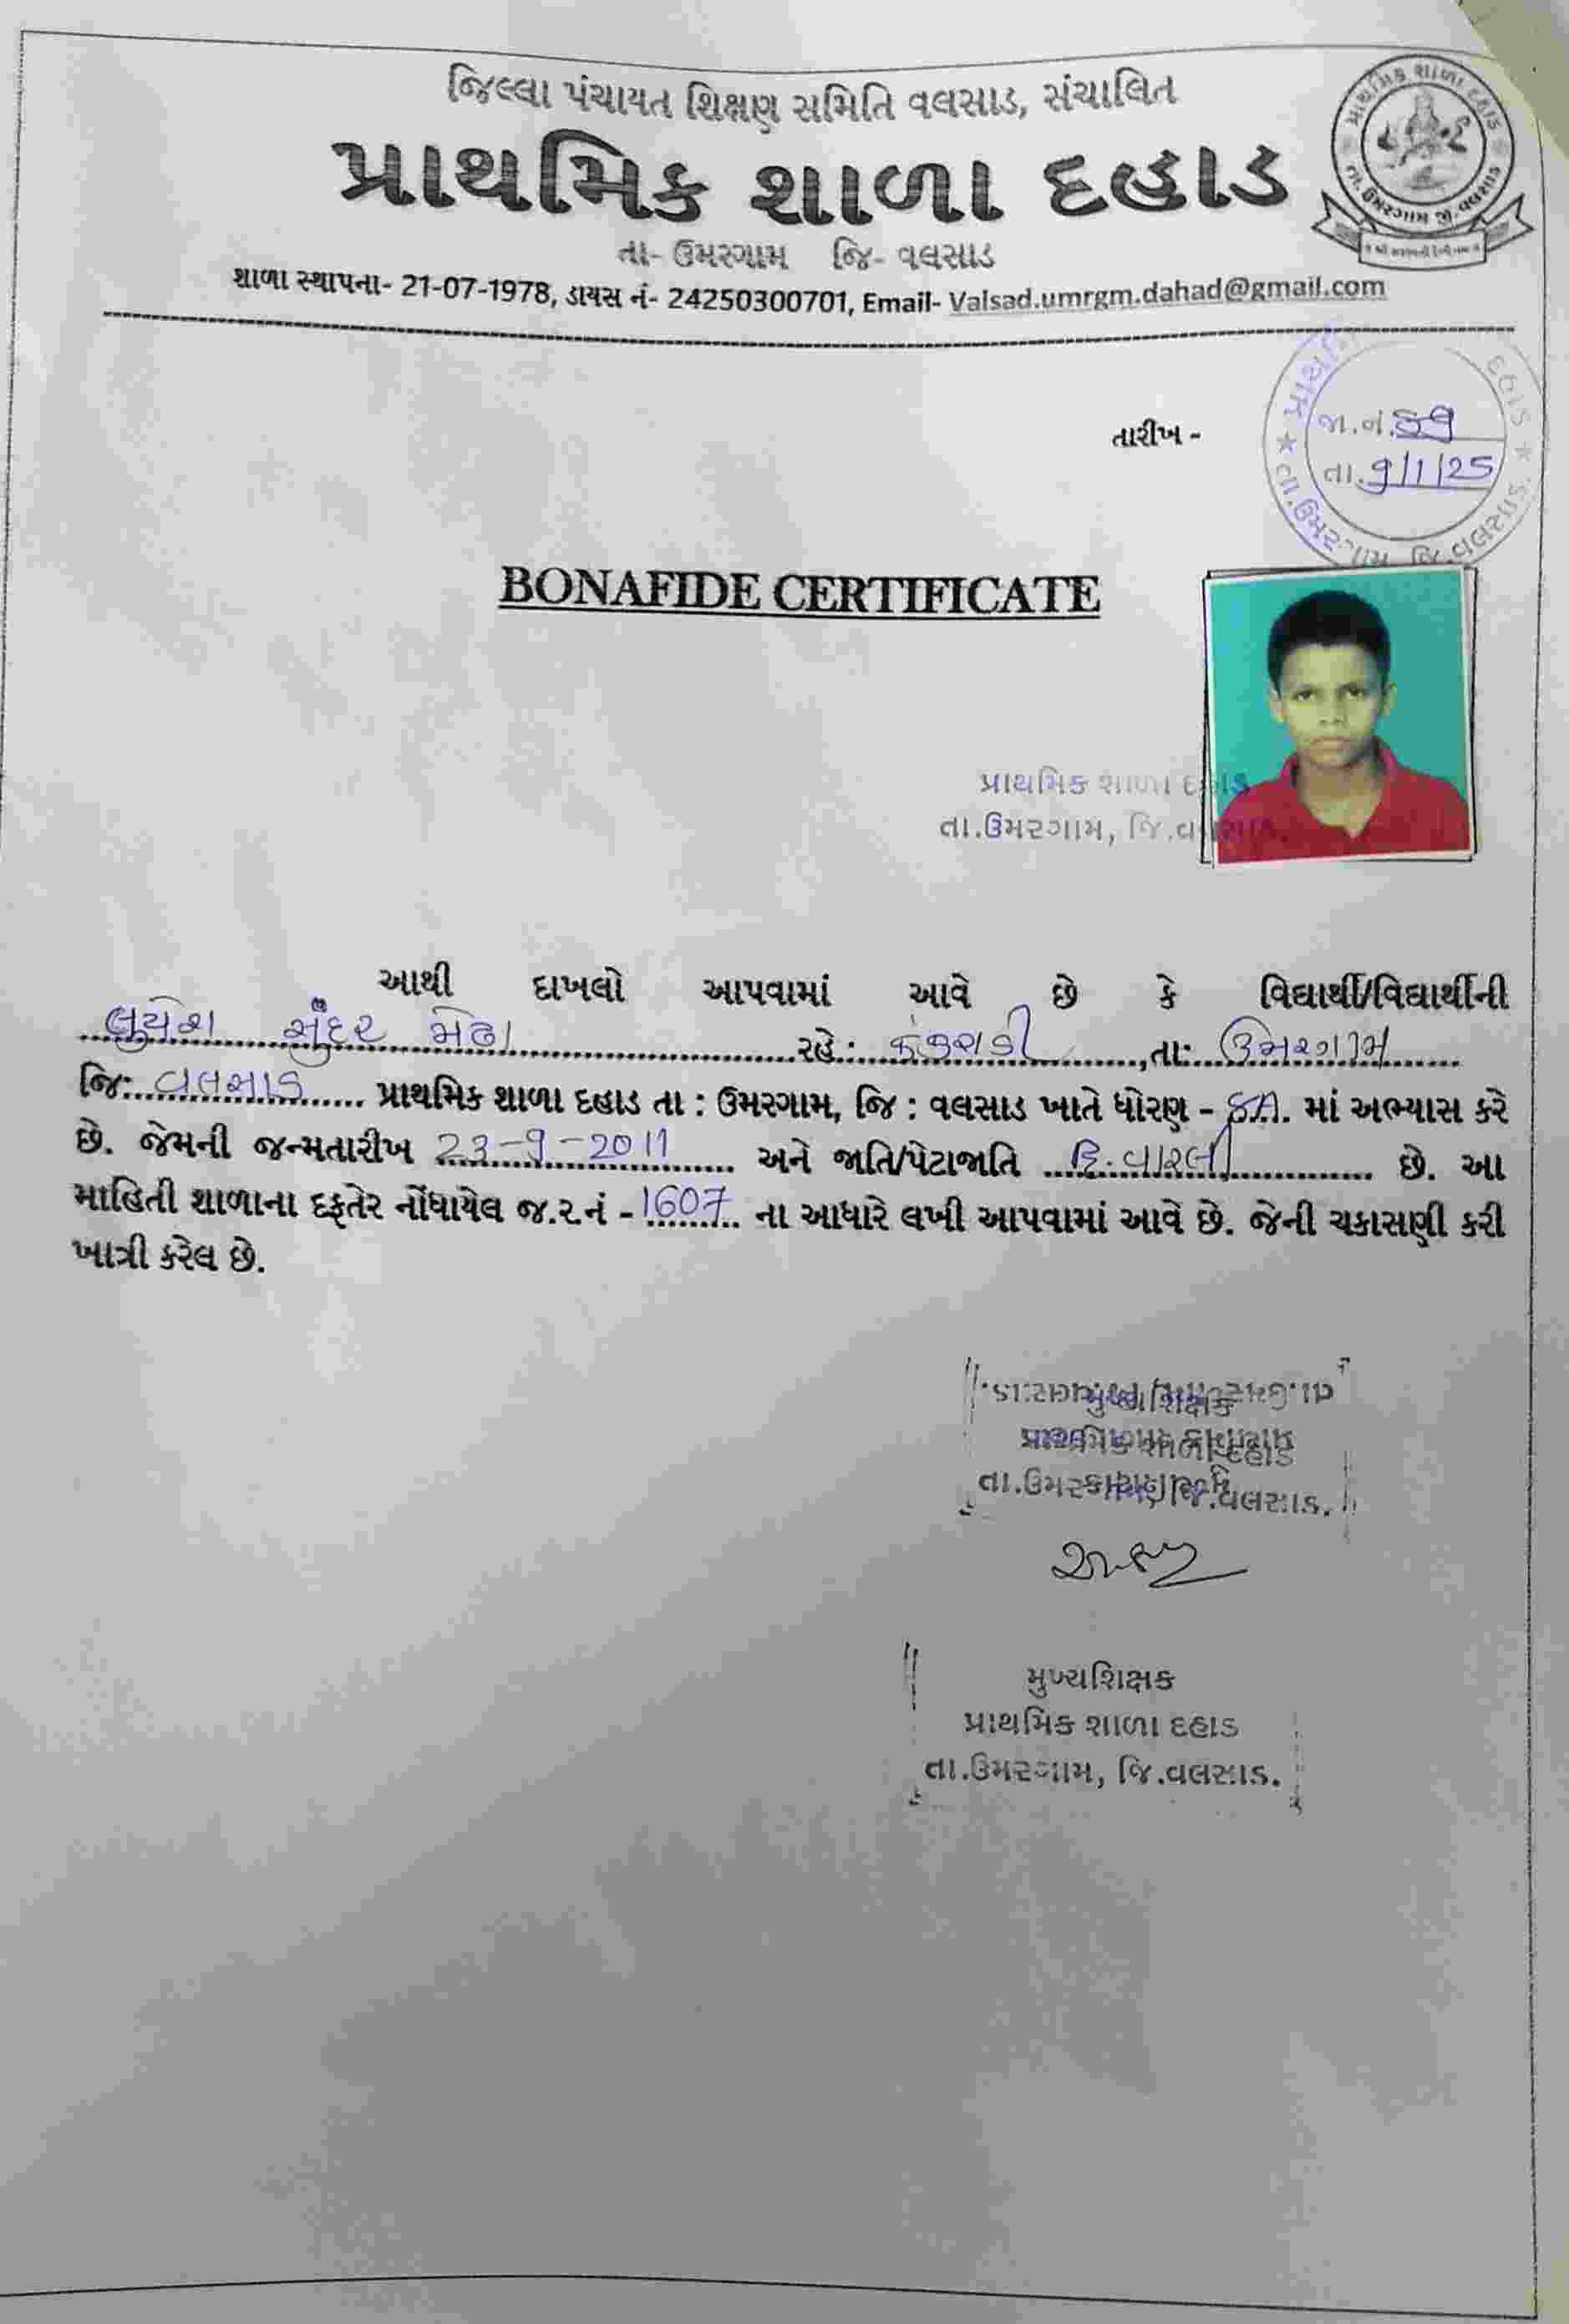 જિલ્લા પંચાયત શિક્ષણ સમિતિ વલસાડ, સંચાલિત
પ્રાથમિક શાળા દહાડ
તા- ઉમરગામ જિ- વલસાડ
શાળા સ્થાપના- 21-07-1978, ડાયસ નં- 24250300701, Email- Valsad.umrgm.dahad@gmail.com
પ્રાથમિક શાળા દહાડ
તા.ઉમરગામ જી.વલસાડ
તારીખ -
જા.નં.
તા. 9/1/25
તા.ઉમરગામ જિ.વલસાડ.
BONAFIDE CERTIFICATE
પ્રાથમિક શાળા દહાડ
તા.ઉમરગામ, જિ.વલસાડ.
આથી દાખલો આપવામાં આવે છે કે વિદ્યાર્થી/વિદ્યાર્થીની
સુંદર મેઢા રહે: તા: ઉમરગામ
જિ: વલસાડ પ્રાથમિક શાળા દહાડ તા : ઉમરગામ, જિ : વલસાડ ખાતે ધોરણ - માં અભ્યાસ કરે
છે. જેમની જન્મતારીખ 23-9-2011 અને જાતિ/પેટાજાતિ હિ.વારલી છે. આ
માહિતી શાળાના દફતેર નોંધાયેલ જ.ર.નં - 1607 ના આધારે લખી આપવામાં આવે છે. જેની ચકાસણી કરી
ખાત્રી કરેલ છે.
મુખ્યશિક્ષક
પ્રાથમિક શાળા દહાડ
તા.ઉમરગામ, જિ.વલસાડ.